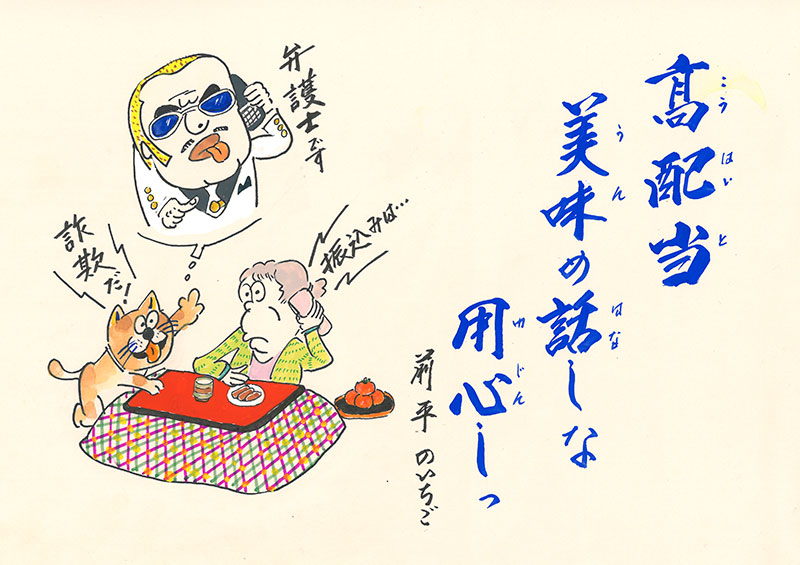 高配当
こうはいと
美味の話しな
うんはな
用心しっ
ゆじん
前平 のいちご
弁護士です
振込みは…
詐欺だ!